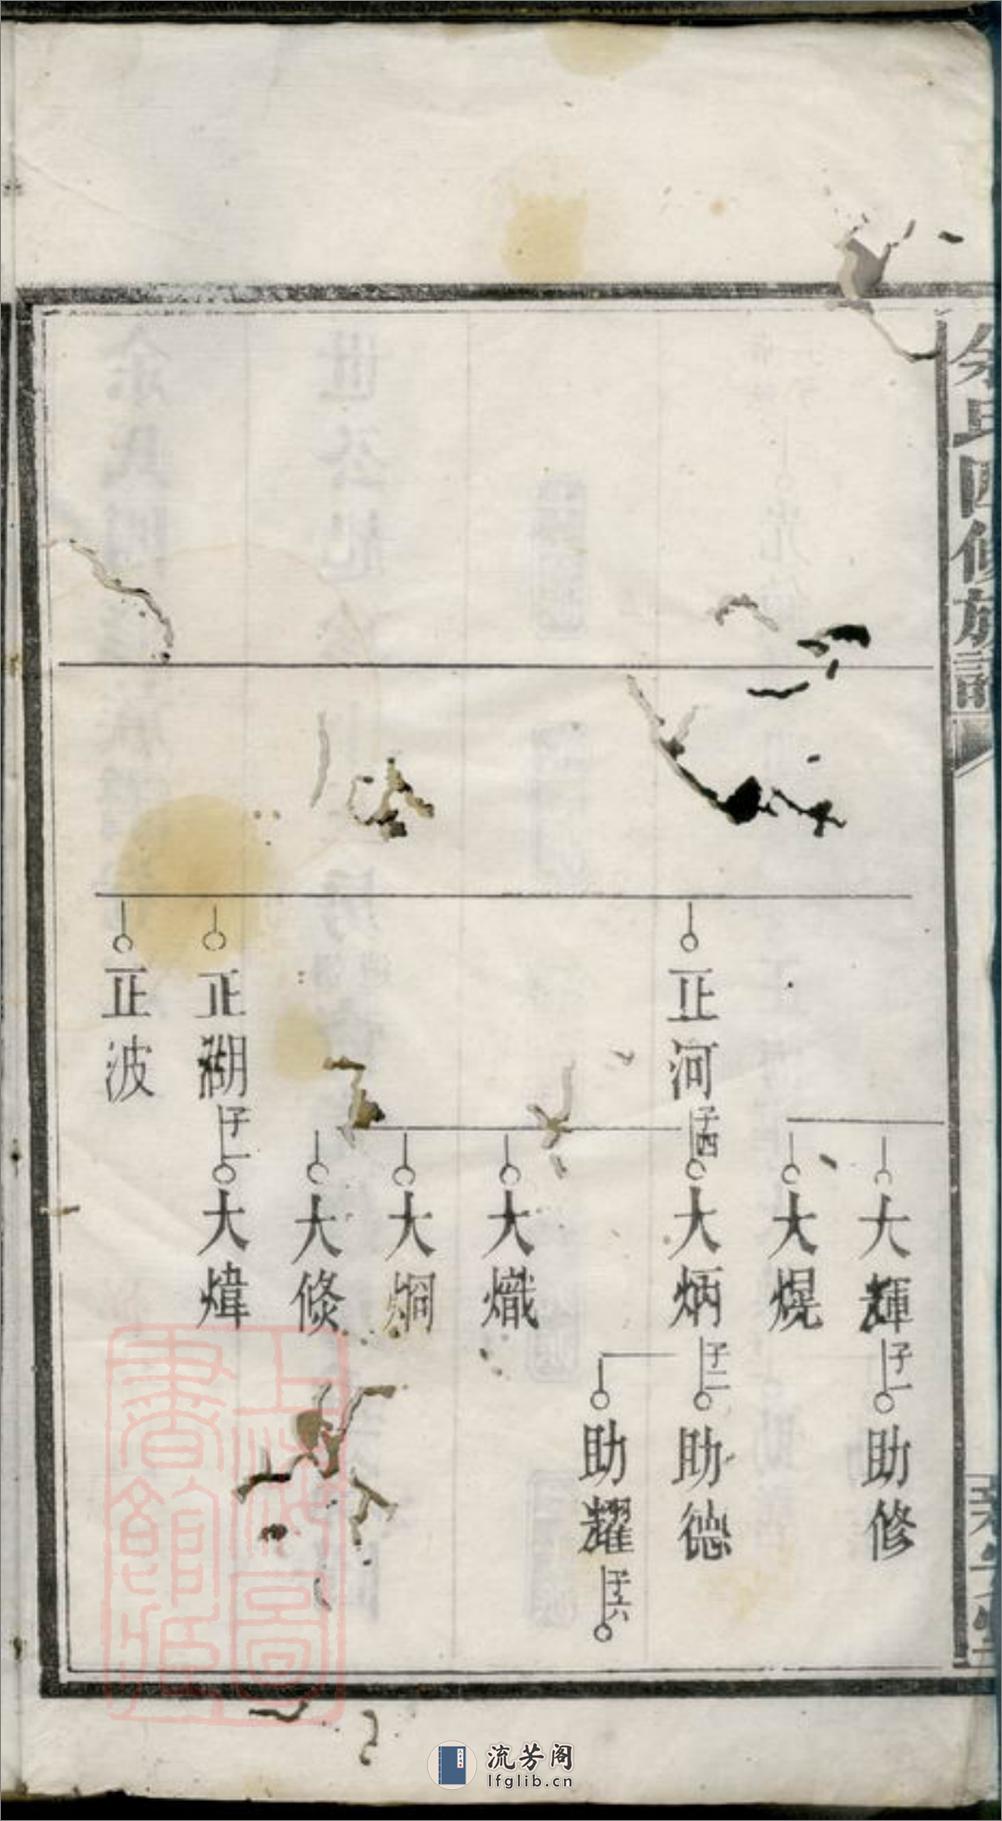 余氏四修族譜
大輝
子一
助修
大熀
正河
子四
大炳
子二
助德
助耀
子六
大熾
大烱
大倏
正湖
子一
大煒
正波
上海圖
書館藏
流芳阁
lfglib.cn